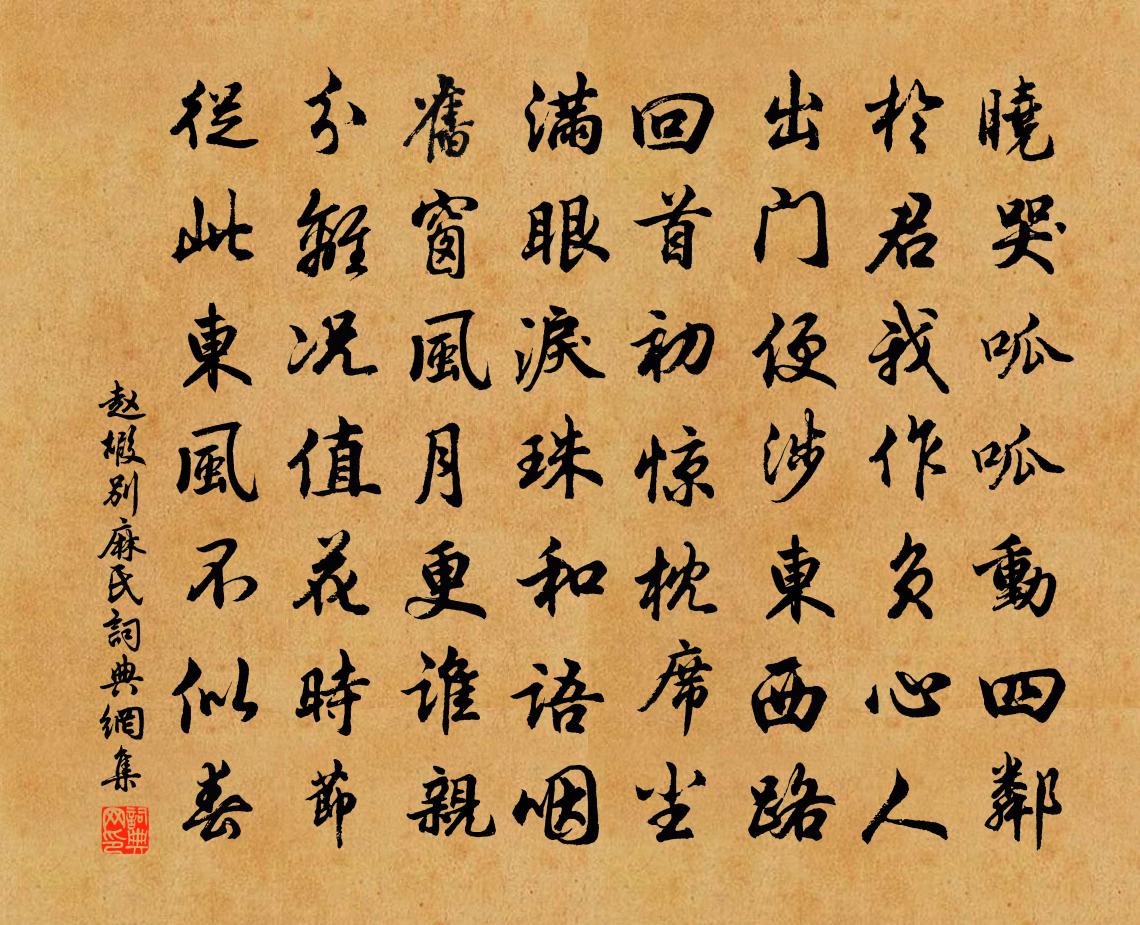 曉哭呱呱動四鄰
於君我作負心人
出門便涉東西路
回首初惊枕席尘
滿眼淚珠和語咽
舊窗風月更誰親
分離況值花時節
從此東風不似春
赵嘏別麻氏詞典網集
詞典网印